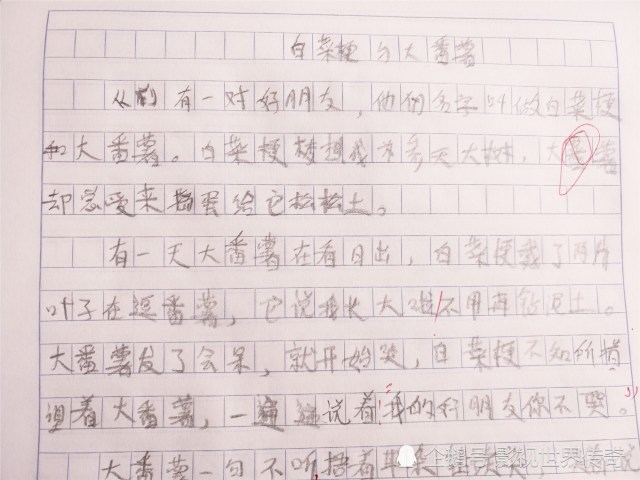 白菜梗与大番薯
从前有一对好朋友，他们名字叫做白菜梗
和大番薯。白菜梗梦想成为参天大树，大番薯
却总爱来捣蛋给它松松土。
有一天大番薯在看日出，白菜梗戴了两片
叶子在逗番薯，它说我长大啦!不用再钻泥土。
大番薯发了会呆，就开始哭，白菜梗不知所措
望着大番薯，一遍遍说着:我的好朋友你不哭。
大番薯一句不听捂着耳朵